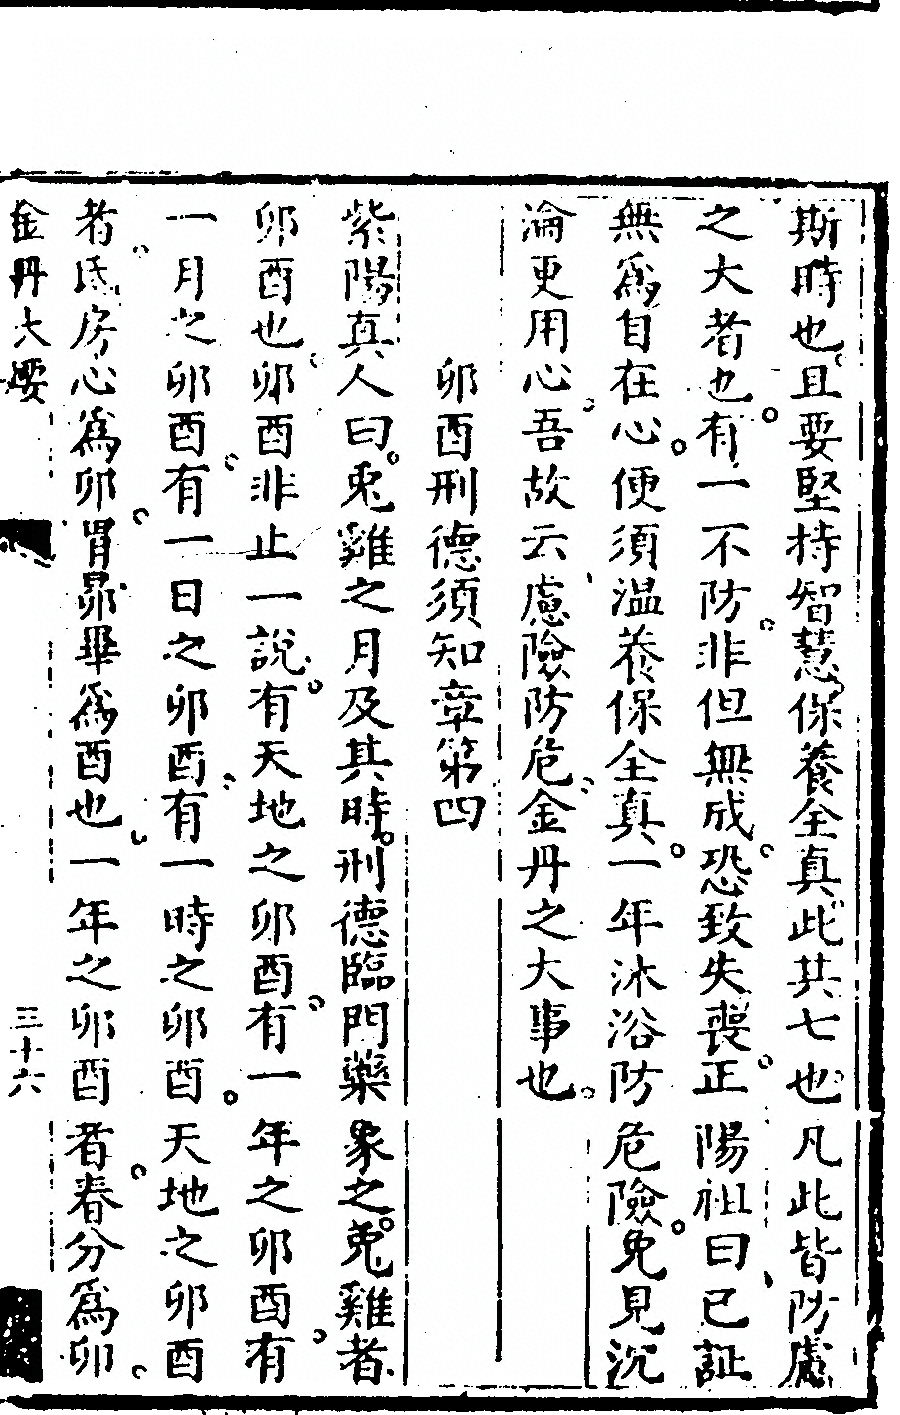 斯時也且要堅持智慧保養全真此其七也凡此皆防慮
之大者也有一不防非但無成恐致失喪正陽祖曰已証
無爲自在心便須温養保全真一年沐浴防危險免見沉
淪更用心吾故云慮險防危金丹之大事也
卯酉刑德須知章第四
紫陽真人曰兎雞之月及其時刑德臨門藥象之兎雞者
卯酉也卯酉非止一說有天地之卯酉有一年之卯酉有
一月之卯酉有一日之卯酉有一時之卯酉天地之卯酉
者氐房心爲卯胃昴畢爲酉也一年之卯酉者春分爲卯
金丹大要
三十六